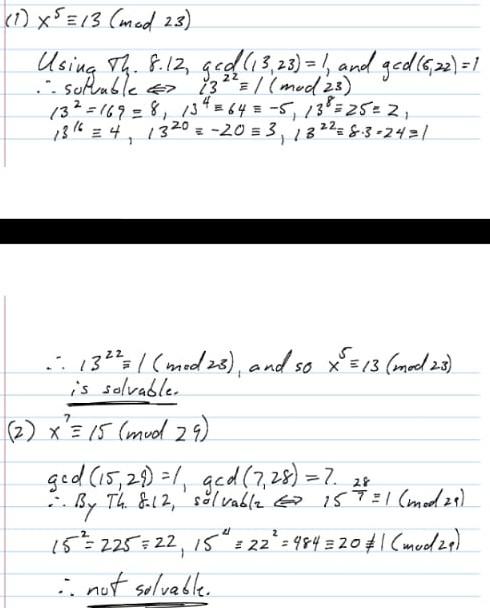 (1) x⁵ ≡ 13 (mod 23)
Using Th. 8.12, gcd(13,23) = 1, and gcd(5,22) = 1
∴ solvable ⇔ 13²² ≡ 1 (mod 23)
13² = 169 ≡ 8, 13⁴ ≡ 64 ≡ -5, 13⁸ ≡ 25 ≡ 2,
13¹⁶ ≡ 4, 13²⁰ ≡ -20 ≡ 3, 13²² ≡ 8·3 = 24 ≡ 1
∴ 13²² ≡ 1 (mod 23), and so x⁵ ≡ 13 (mod 23)
is solvable.
(2) x⁷ ≡ 15 (mod 29)
gcd(15,29) = 1, gcd(7,28) = 7.
∴ By Th. 8.12, solvable ⇔ 15^(28/7) ≡ 1 (mod 29)
15² = 225 ≡ 22, 15⁴ ≡ 22² = 484 ≡ 20 ≢ 1 (mod 29)
∴ not solvable.